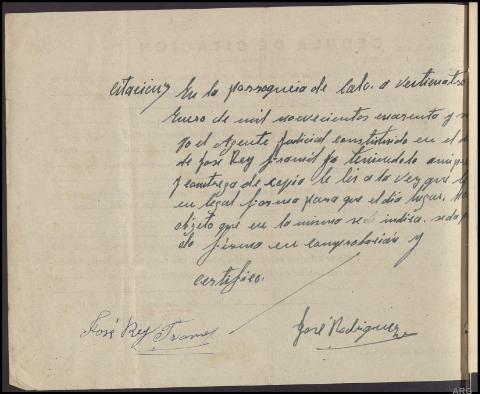 Citacion/ En la parroquia de Lalo. a veinticuatro
Enero de mil novecientos cuarenta y
yo el Agente Judicial constituido en el d
de José Rey framil fo teniendolo
y entrega de copia le lei a la vez que l
en legal forma para que el dia lugar,
objeto que en la misma se indica.
do firma en comprobación y
certifico.
José Rey
José Rodriguez
ARG